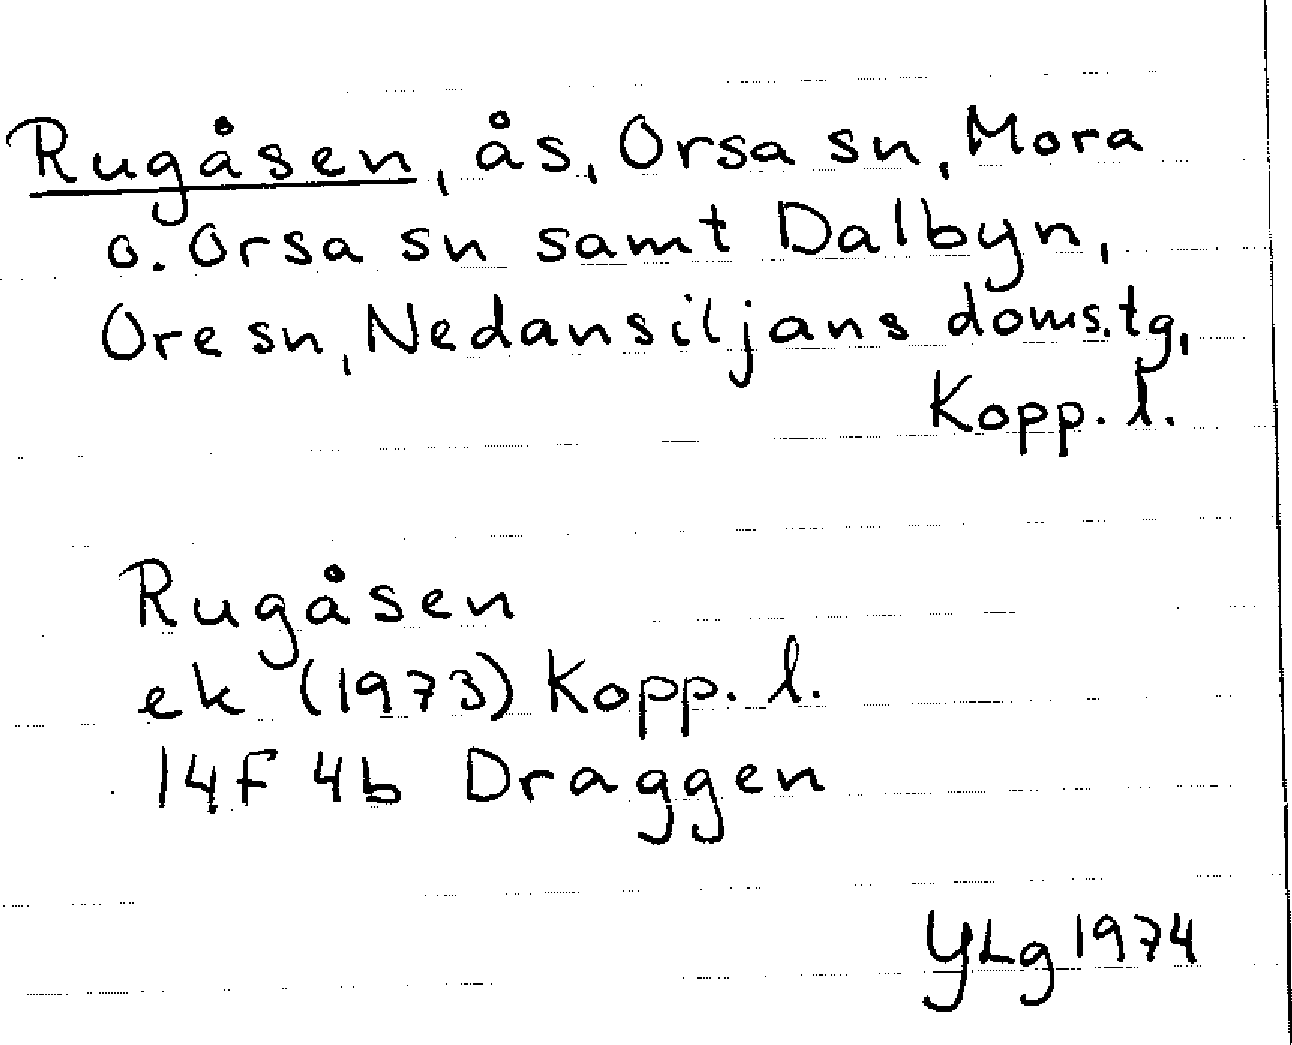 Rugåsen, ås, Orsa sn, Mora
o. Orsa sn samt Dalbyn,
Ore sn, Nedansiljans doms.tg,
Kopp. l.
Rugåsen
ek (1973) Kopp. l.
14F 4b Draggen
YLg 1974